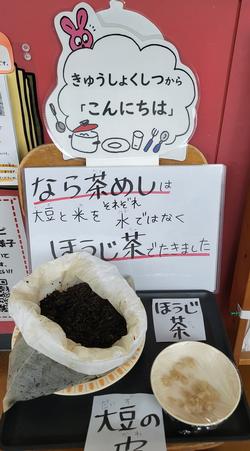 きゅうしょくしつから
「こんにちは」
なら茶めしは
大豆と米をそれぞれ水ではなく
ほうじ茶でたきました
ほうじ
茶
だいず
大豆の